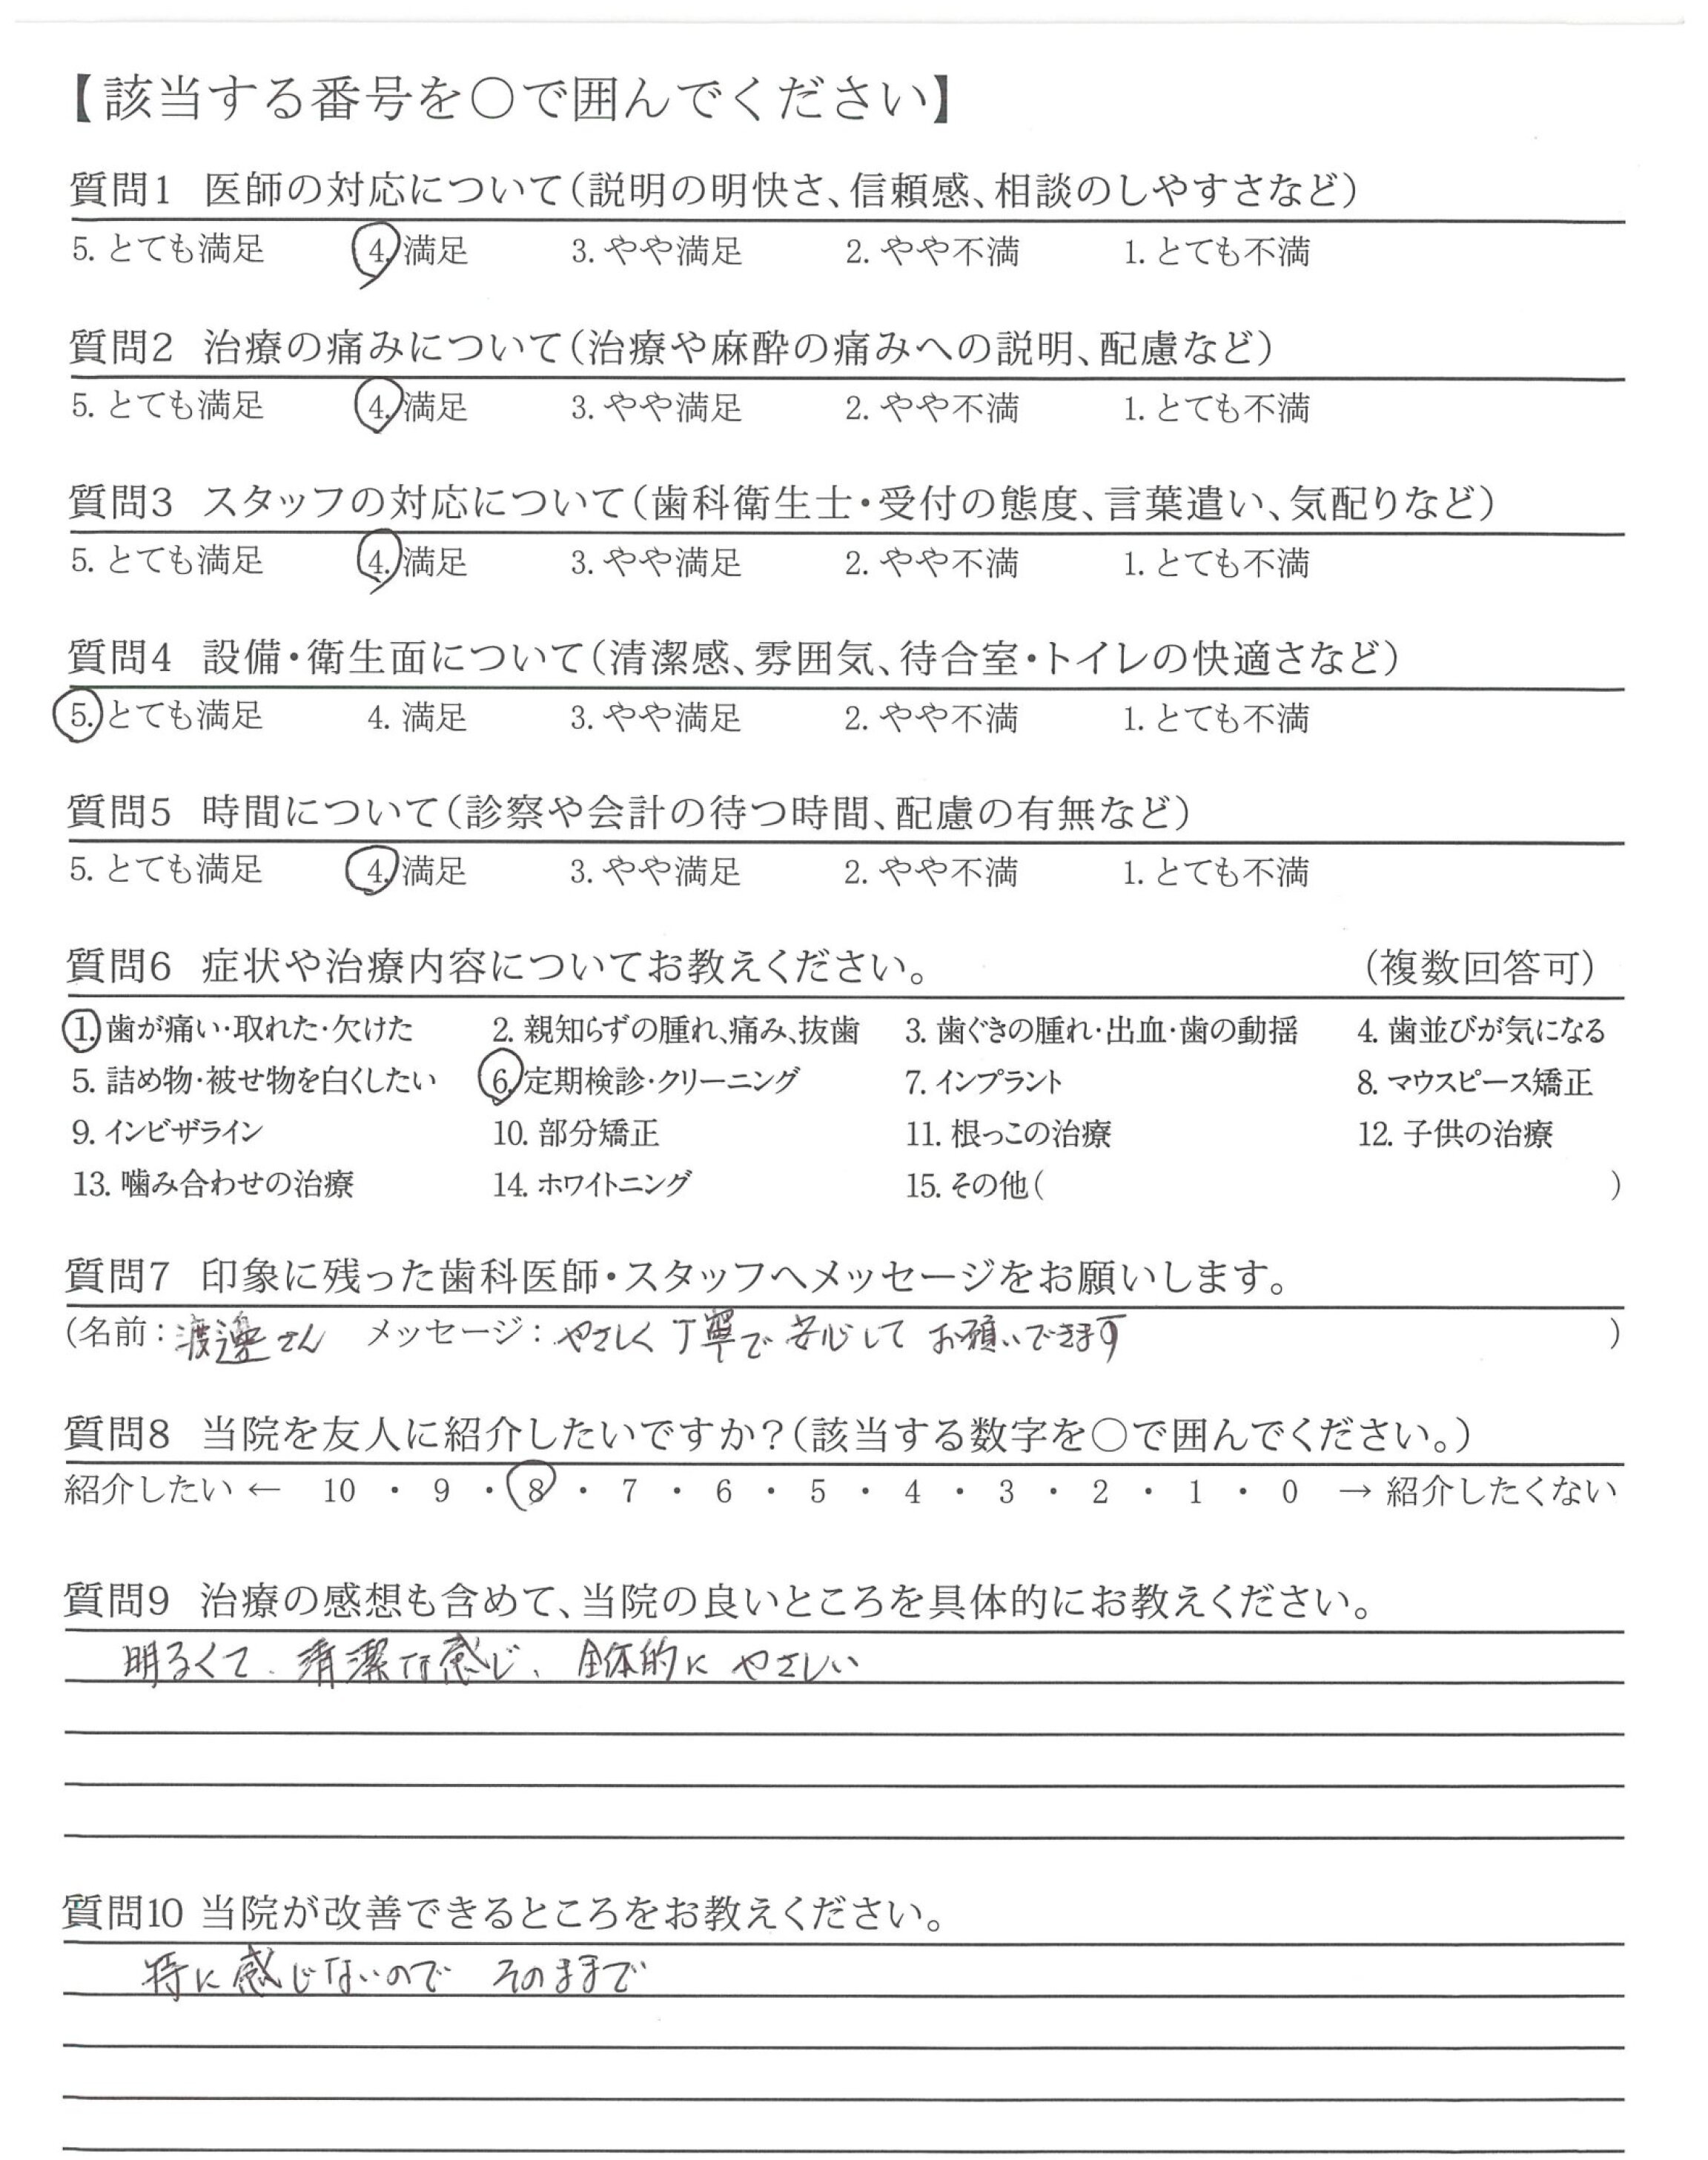 【該当する番号を〇で囲んでください】
質問1 医師の対応について(説明の明快さ、信頼感、相談のしやすさなど)
5. とても満足 4. 満足 3. やや満足 2. やや不満 1. とても不満
質問2 治療の痛みについて(治療や麻酔の痛みへの説明、配慮など)
5. とても満足 4. 満足 3. やや満足 2. やや不満 1. とても不満
質問3 スタッフの対応について(歯科衛生士・受付の態度、言葉遣い、気配りなど)
5. とても満足 4. 満足 3. やや満足 2. やや不満 1. とても不満
質問4 設備・衛生面について(清潔感、雰囲気、待合室・トイレの快適さなど)
5. とても満足 4. 満足 3. やや満足 2. やや不満 1. とても不満
質問5 時間について(診察や会計の待つ時間、配慮の有無など)
5. とても満足 4. 満足 3. やや満足 2. やや不満 1. とても不満
質問6 症状や治療内容についてお教えください。 (複数回答可)
1. 歯が痛い・取れた・欠けた 2. 親知らずの腫れ、痛み、抜歯 3. 歯ぐきの腫れ・出血・歯の動揺 4. 歯並びが気になる
5. 詰め物・被せ物を白くしたい 6. 定期検診・クリーニング 7. インプラント 8. マウスピース矯正
9. インビザライン 10. 部分矯正 11. 根っこの治療 12. 子供の治療
13. 噛み合わせの治療 14. ホワイトニング 15. その他( )
質問7 印象に残った歯科医師・スタッフへメッセージをお願いします。
(名前:渡邊さん メッセージ:やさしく丁寧で安心してお願いできます )
質問8 当院を友人に紹介したいですか?(該当する数字を〇で囲んでください。)
紹介したい ← 10 ・ 9 ・ 8 ・ 7 ・ 6 ・ 5 ・ 4 ・ 3 ・ 2 ・ 1 ・ 0 → 紹介したくない
質問9 治療の感想も含めて、当院の良いところを具体的にお教えください。
明るくて、清潔な感じ、全体的にやさしい
質問10 当院が改善できるところをお教えください。
特に感じないので そのままで